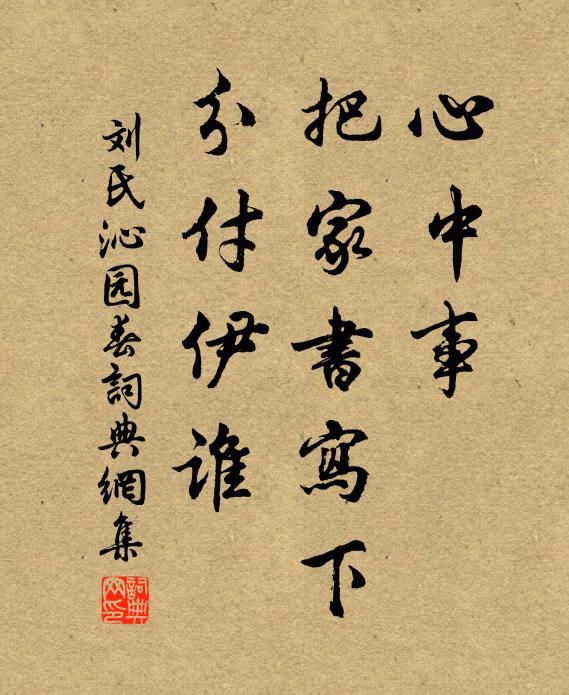 心中事
把家書寫下
分付伊誰
刘氏沁园春詞典網集
詞典網印